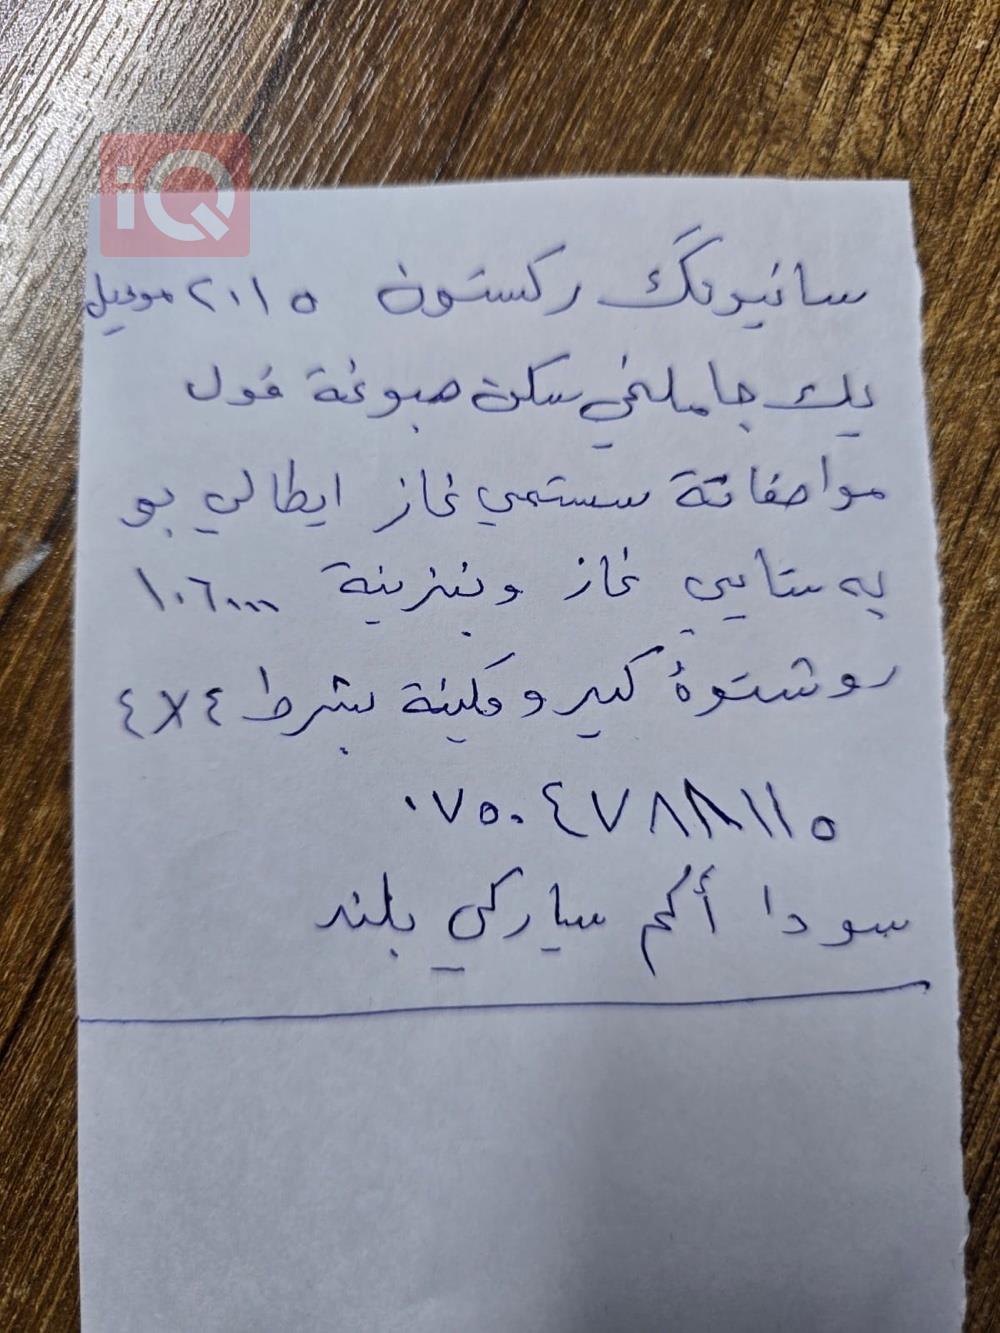 iQ
سانيونگ ركستون ٢٠١٥ موديل
يك جاملغي سكن صبوغة فول
مواصفاتة سستمي غاز ايطالي بو
به ستايي غاز وبنزينة ١٠٦٠٠٠
روشتوة كير ومكينة بشرط ٤X٤
٠٧٥٠٤٧٨٨١١٥
سودا أكم سياركي بلند